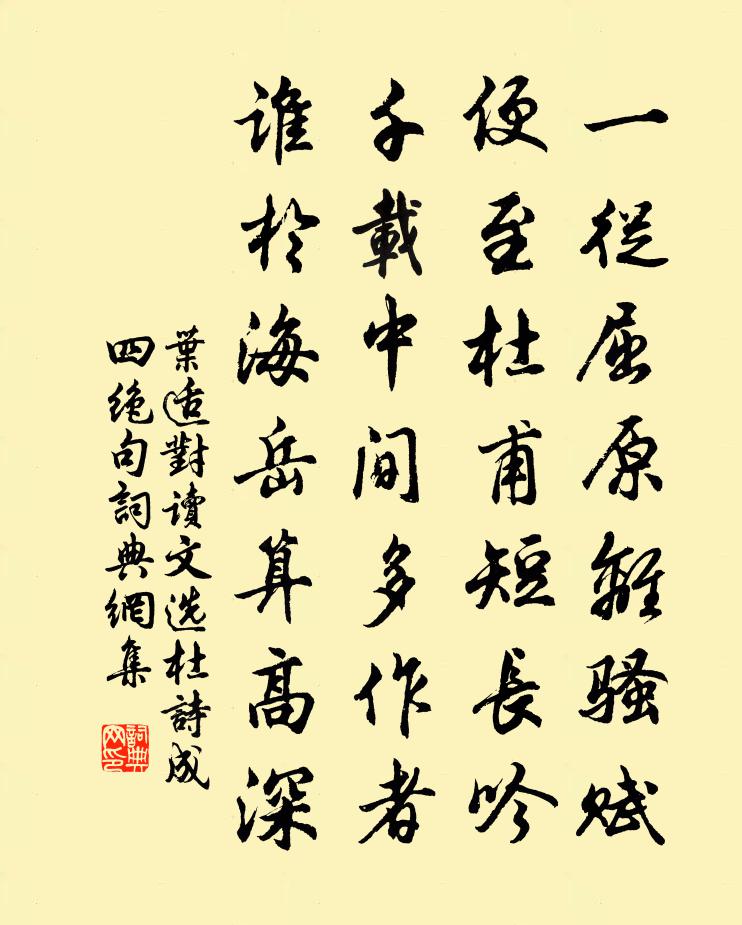 一從屈原離騷賦
便至杜甫短長吟
千載中间多作者
谁於海岳算高深
葉适對读文选杜詩成
四絶句詞典網集
詞典网印